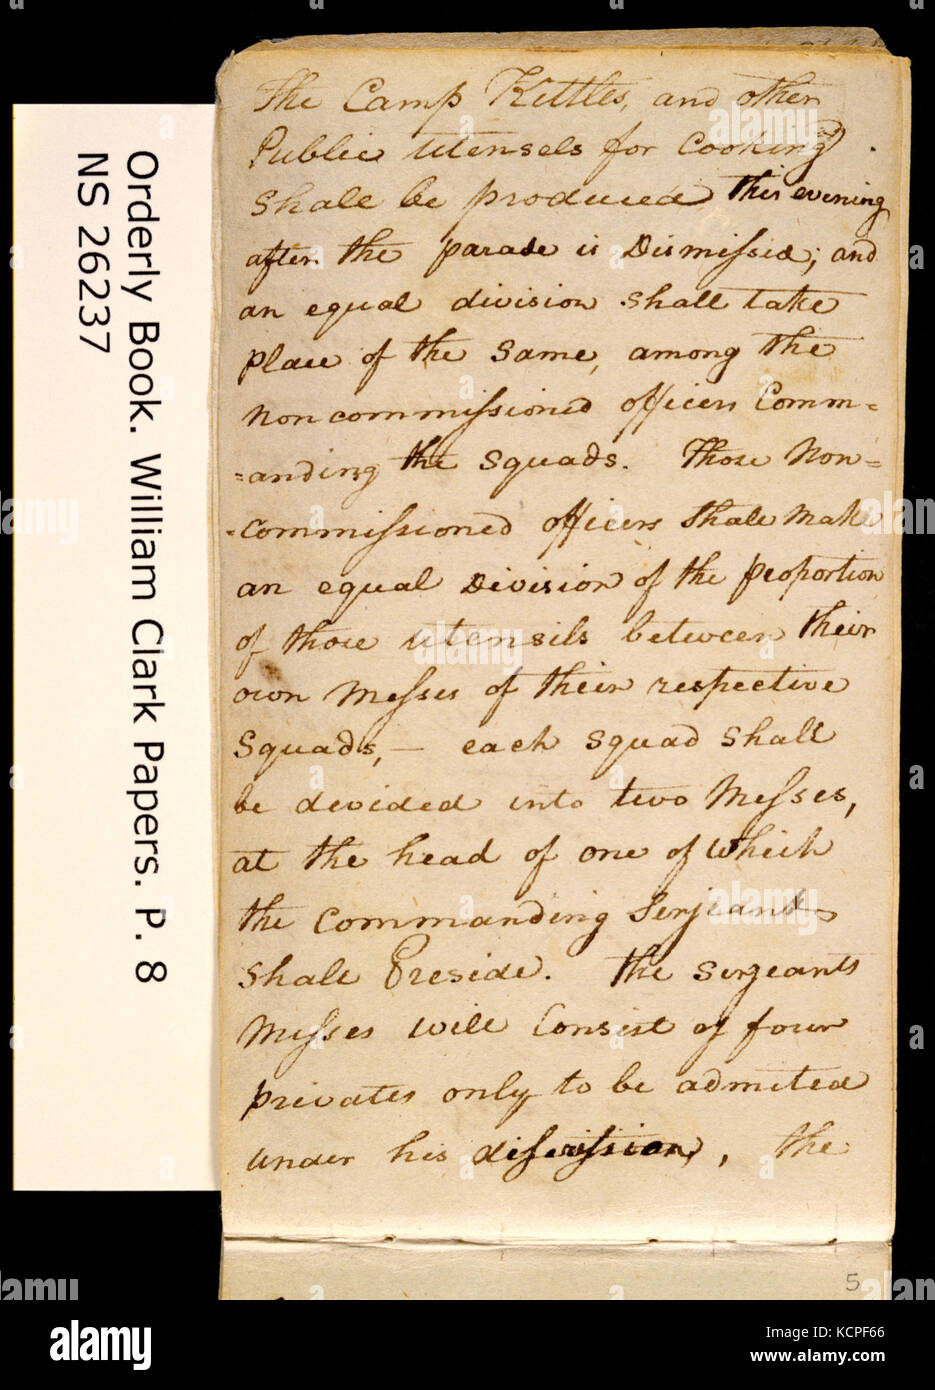 The Camp Kittles, and other
Public utensels for Cooking
Shall be produced this evening
after the parade is Dismissed; and
an equal division shall take
place of the same, among the
non commissioned officers Comm=
=anding the squads. Those Non=
=commissioned officers shall make
an equal Division of the proportion
of those utensils between their
own messes of their respective
squads, — each squad shall
be devided into two messes,
at the head of one of which
the commanding Serjeant
shall Preside. the sergeants
messes will Consist of four
privates only to be admited
under his, the
5
Orderly Book. William Clark Papers. P. 8
NS 26237
alamy
Image ID: KCPF66
www.alamy.com